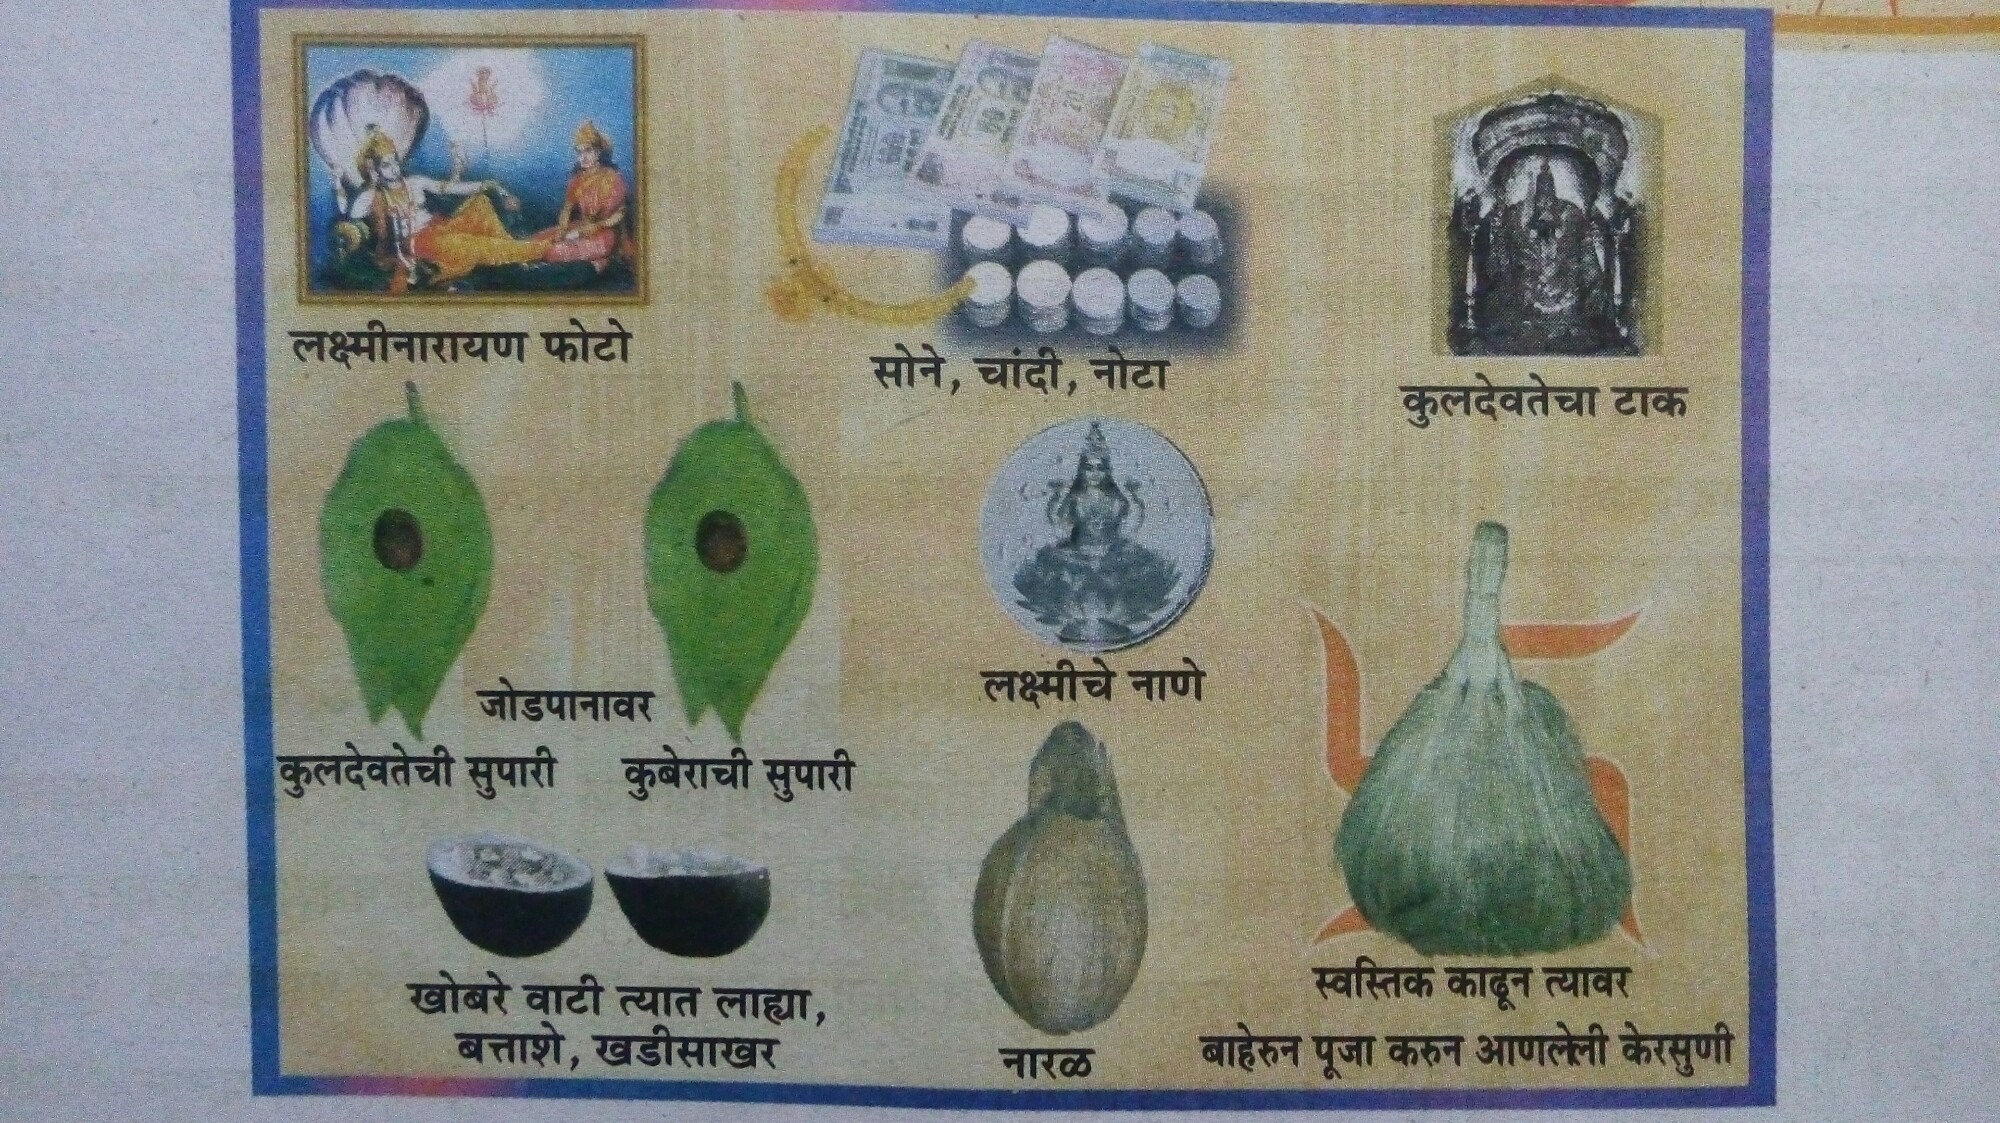 लक्ष्मीनारायण फोटो
सोने, चांदी, नोटा
कुलदेवतेचा टाक
जोडपानावर
कुलदेवतेची सुपारी
कुबेराची सुपारी
लक्ष्मीचे नाणे
खोबरे वाटी त्यात लाह्या,
बत्ताशे, खडीसाखर
नारळ
स्वस्तिक काढून त्यावर
बाहेरुन पूजा करुन आणलेली केरसुणी